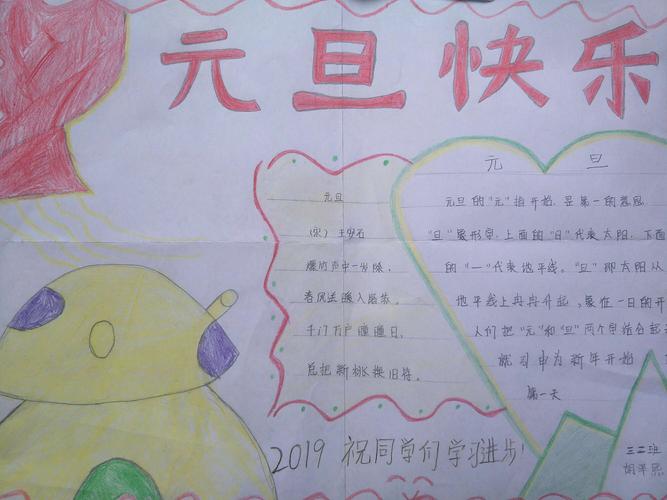 元旦快乐
元旦
(宋) 王安石
爆竹声中一岁除,
春风送暖入屠苏。
千门万户曈曈日,
总把新桃换旧符。
元旦
元旦的"元"指开始,是第一的意思
"旦"象形字,上面的"日"代表太阳,下面
的"一"代表地平线。"旦"即太阳从
地平线上冉冉升起,象征一日的开
人们把"元"和"旦"两个字结合起
就引申为新年开始
第一天
2019 祝同学们学习进步!
三二班
胡